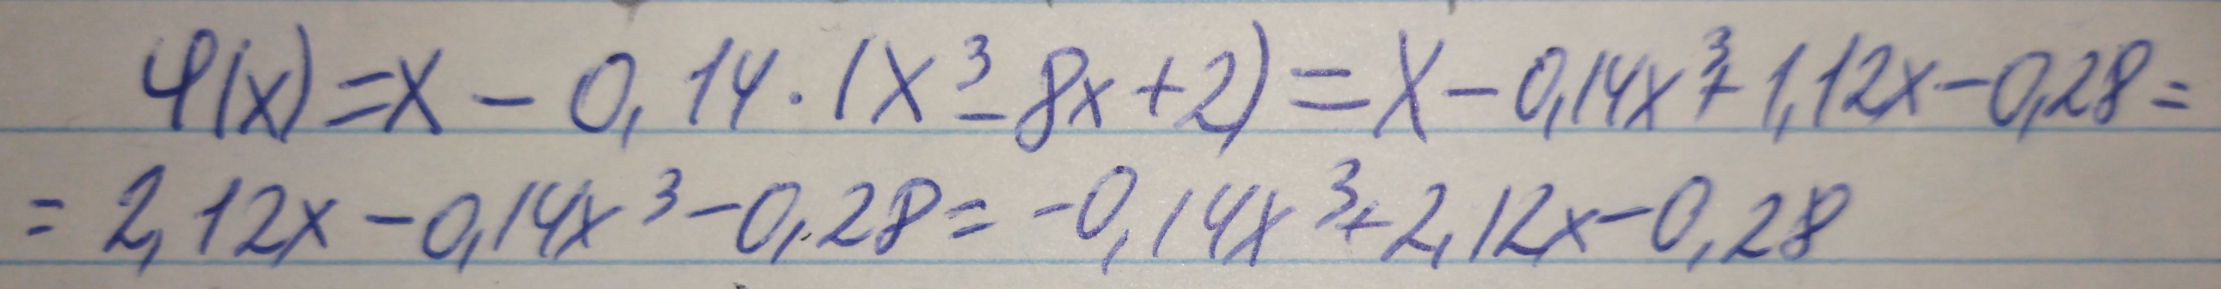 φ(x)=x-0,14·(x³-8x+2)=x-0,14x³+1,12x-0,28=
=2,12x-0,14x³-0,28=-0,14x³+2,12x-0,28